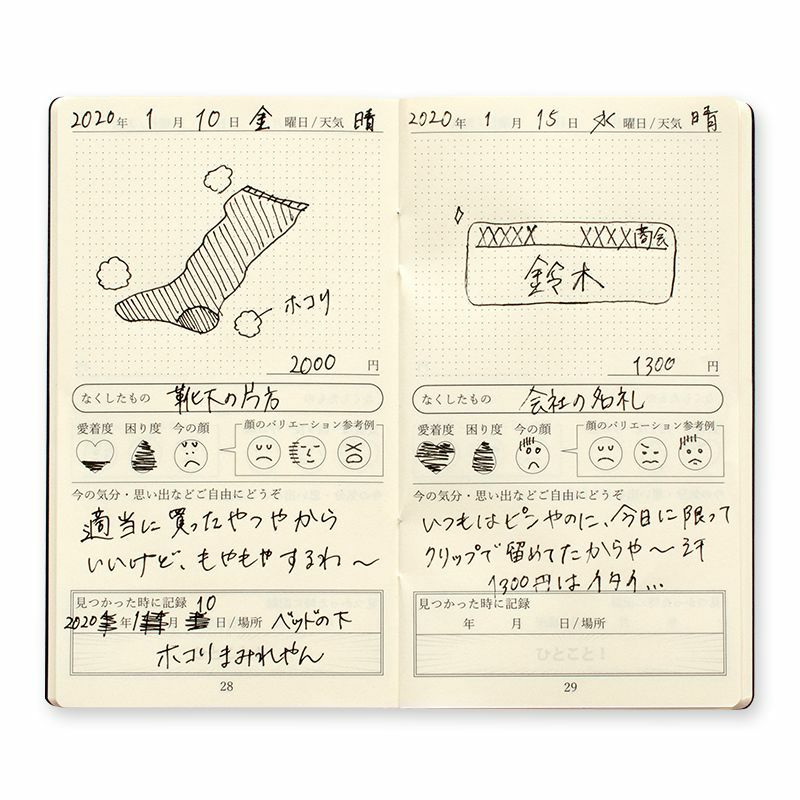 2020年 1月 10日 金 曜日/天気 晴
ホコリ
2000 円
なくしたもの 靴下の片方
愛着度 困り度 今の顔 顔のバリエーション参考例
今の気分・思い出などご自由にどうぞ
適当に買ったやつやから
いいけど、もやもやするわ〜
見つかった時に記録 10
2020年 1月 日/場所 ベッドの下
ホコリまみれやん
28
2020年 1月 15日 水 曜日/天気 晴
XXXXX XXXX商会
鈴木
1300 円
なくしたもの 会社の名札
愛着度 困り度 今の顔 顔のバリエーション参考例
今の気分・思い出などご自由にどうぞ
いつもはピンやのに、今日に限って
クリップで留めてたからや〜
1300円はイタイ…
見つかった時に記録
年 月 日/場所
29